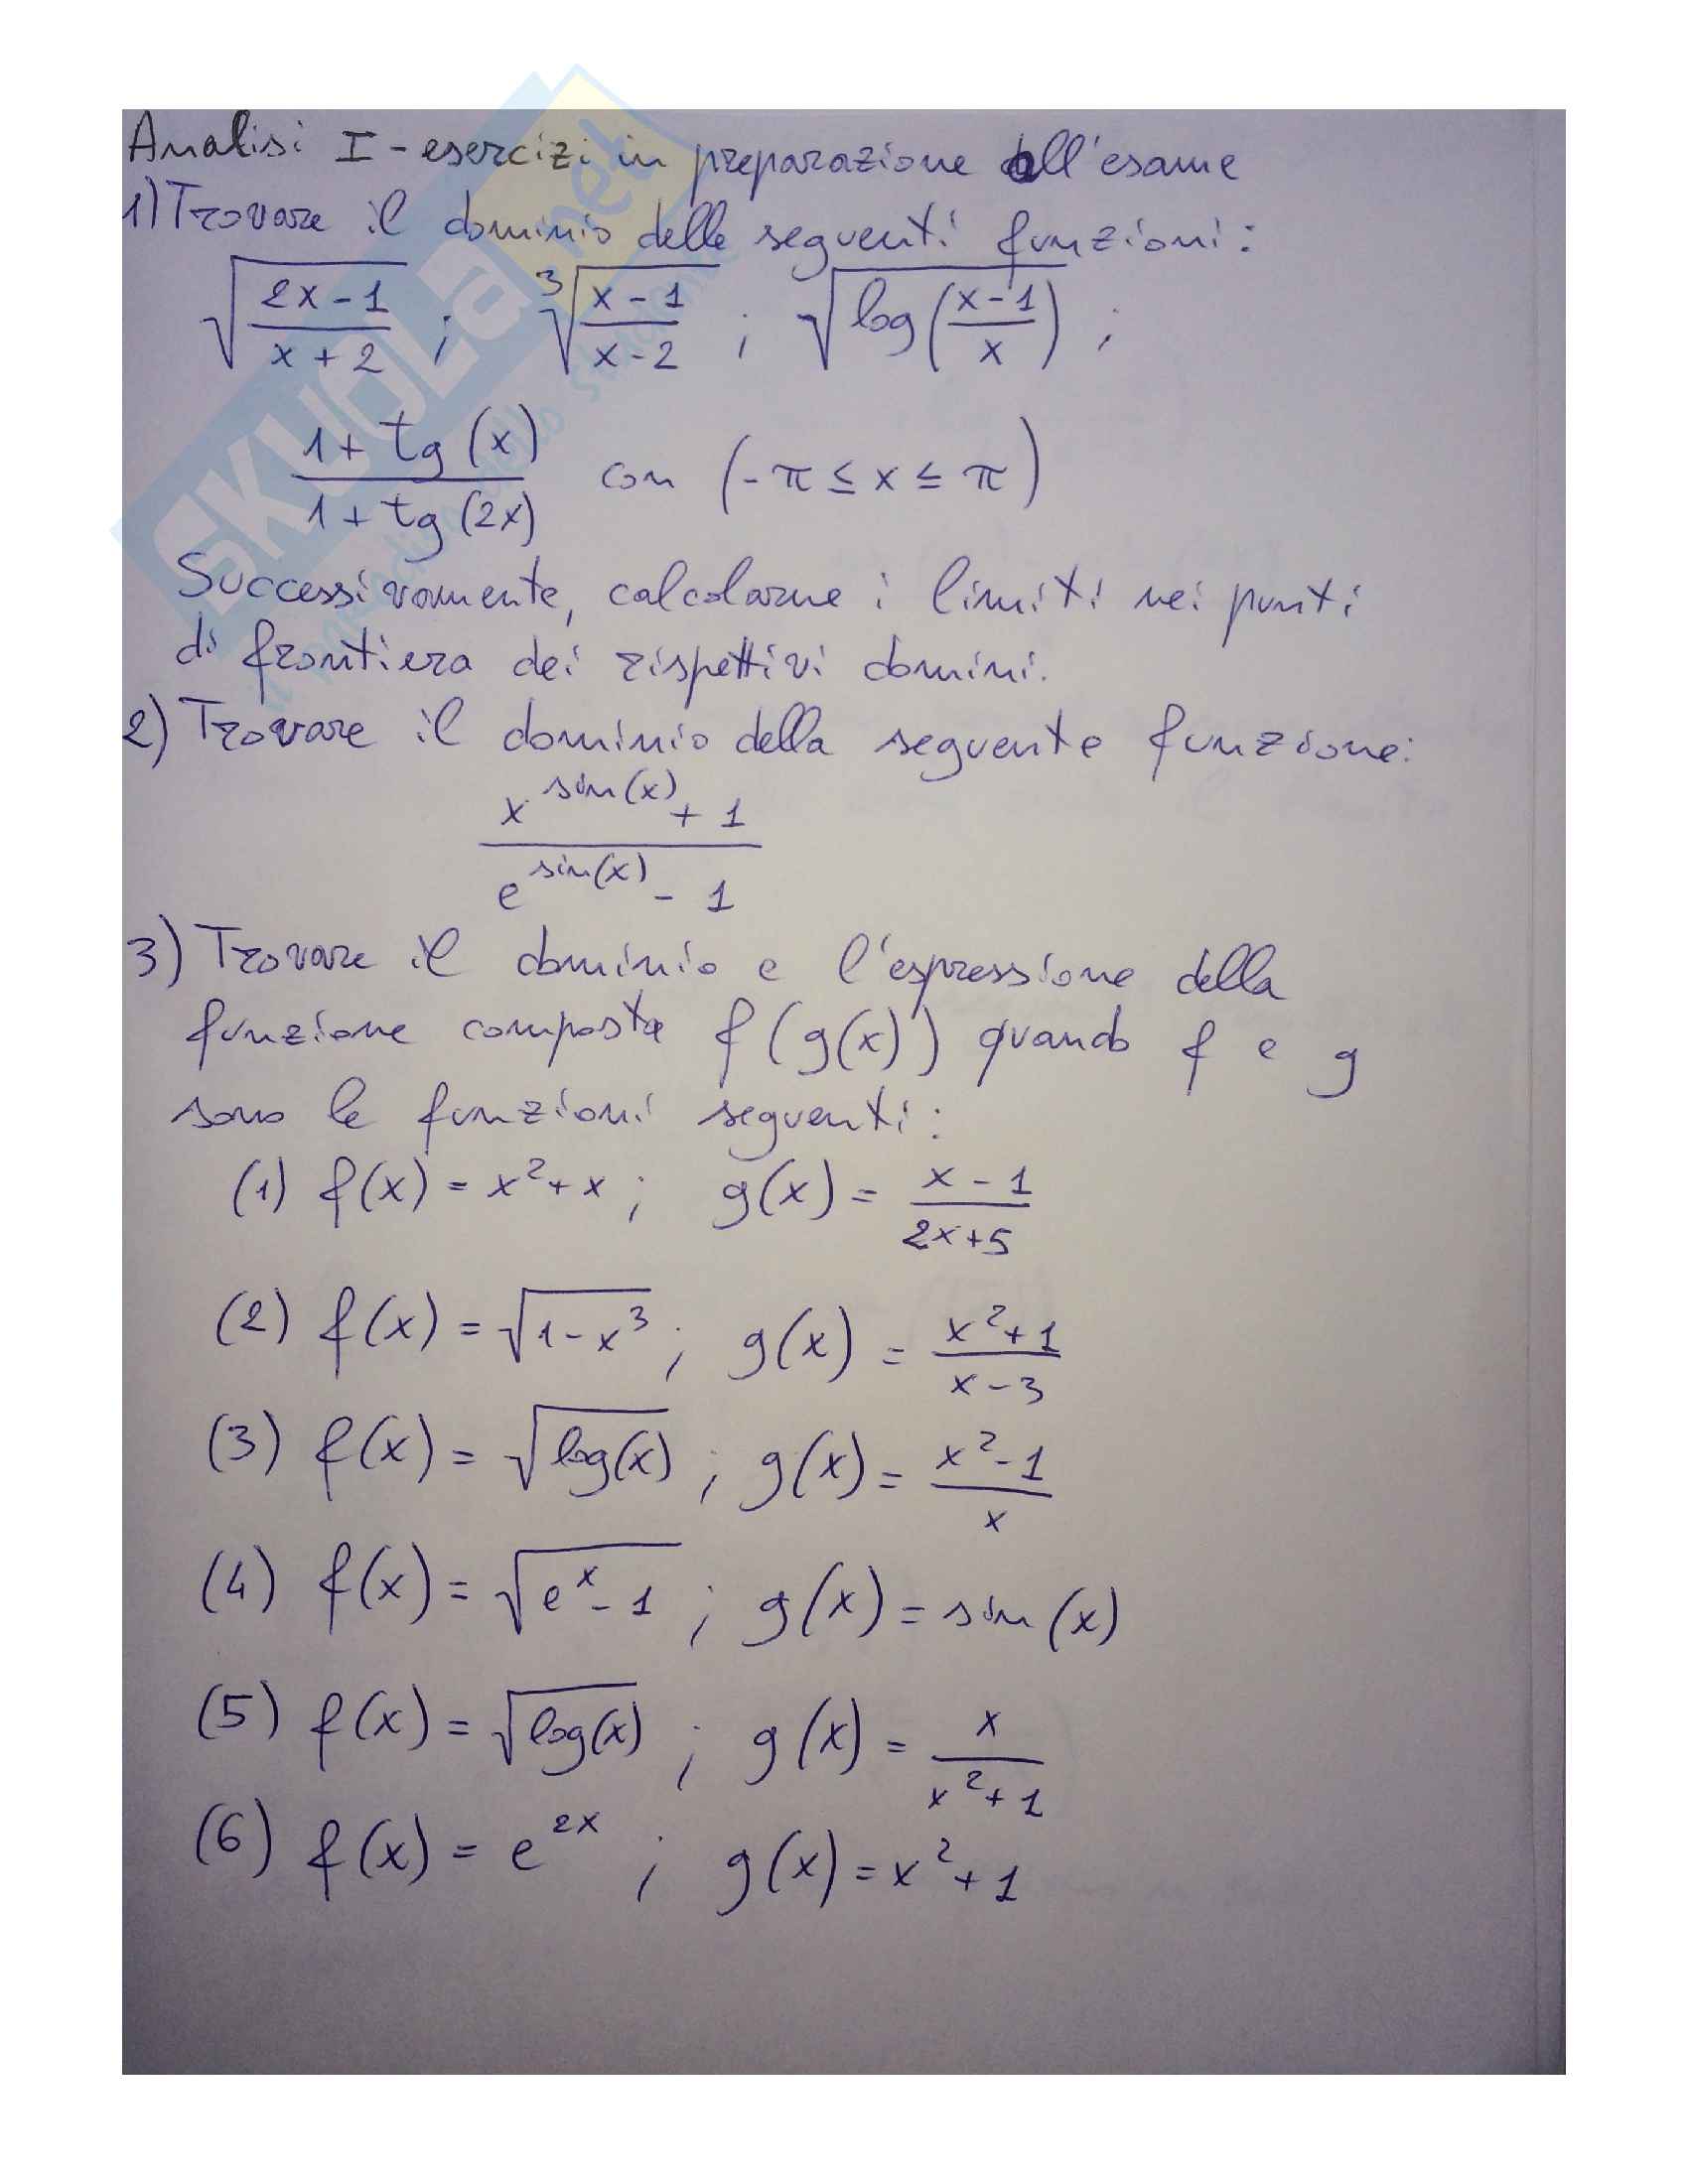 Analisi I - esercizi in preparazione all'esame
1) Trovare il dominio delle seguenti funzioni:
√((2x-1)/(x+2)) ; ³√((x-1)/(x-2)) ; √(log((x-1)/x)) ;
(1+tg(x))/(1+tg(2x)) con (-π ≤ x ≤ π)
Successivamente, calcolarne i limiti nei punti
di frontiera dei rispettivi domini.
2) Trovare il dominio della seguente funzione:
(x^sin(x) + 1)/(e^sin(x) - 1)
3) Trovare il dominio e l'espressione della
funzione composta f(g(x)) quando f e g
sono le funzioni seguenti:
(1) f(x) = x²+x ; g(x) = (x-1)/(2x+5)
(2) f(x) = √(1-x³) ; g(x) = (x²+1)/(x-3)
(3) f(x) = √(log(x)) ; g(x) = (x²-1)/x
(4) f(x) = √(e^x-1) ; g(x) = sin(x)
(5) f(x) = √(log(x)) ; g(x) = x/(x²+1)
(6) f(x) = e^2x ; g(x) = x²+1
SKUOLA.net